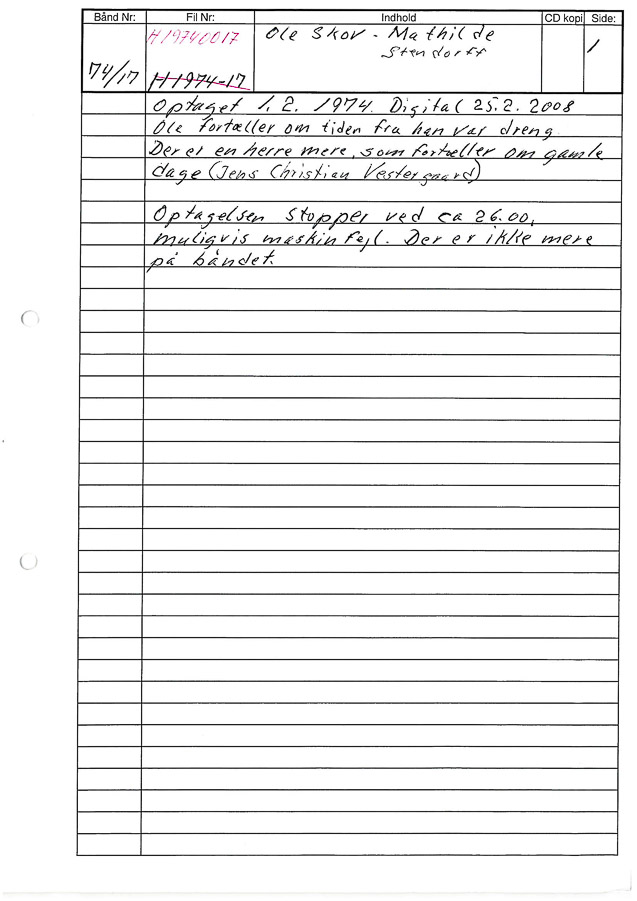 Bånd Nr: Fil Nr: Indhold CD kopi Side:
H19740017 Ole Skov - Mathilde 1
Stendorff
74/17 H1974-17
Optaget 1.2. 1974. Digital 25.2. 2008
Ole fortæller om tiden fra han var dreng
Der er en herre mere, som fortæller om gamle
dage (Jens Christian Vestergaard)
Optagelsen stopper ved ca 26.00,
muligvis maskinfejl. Der er ikke mere
på båndet.